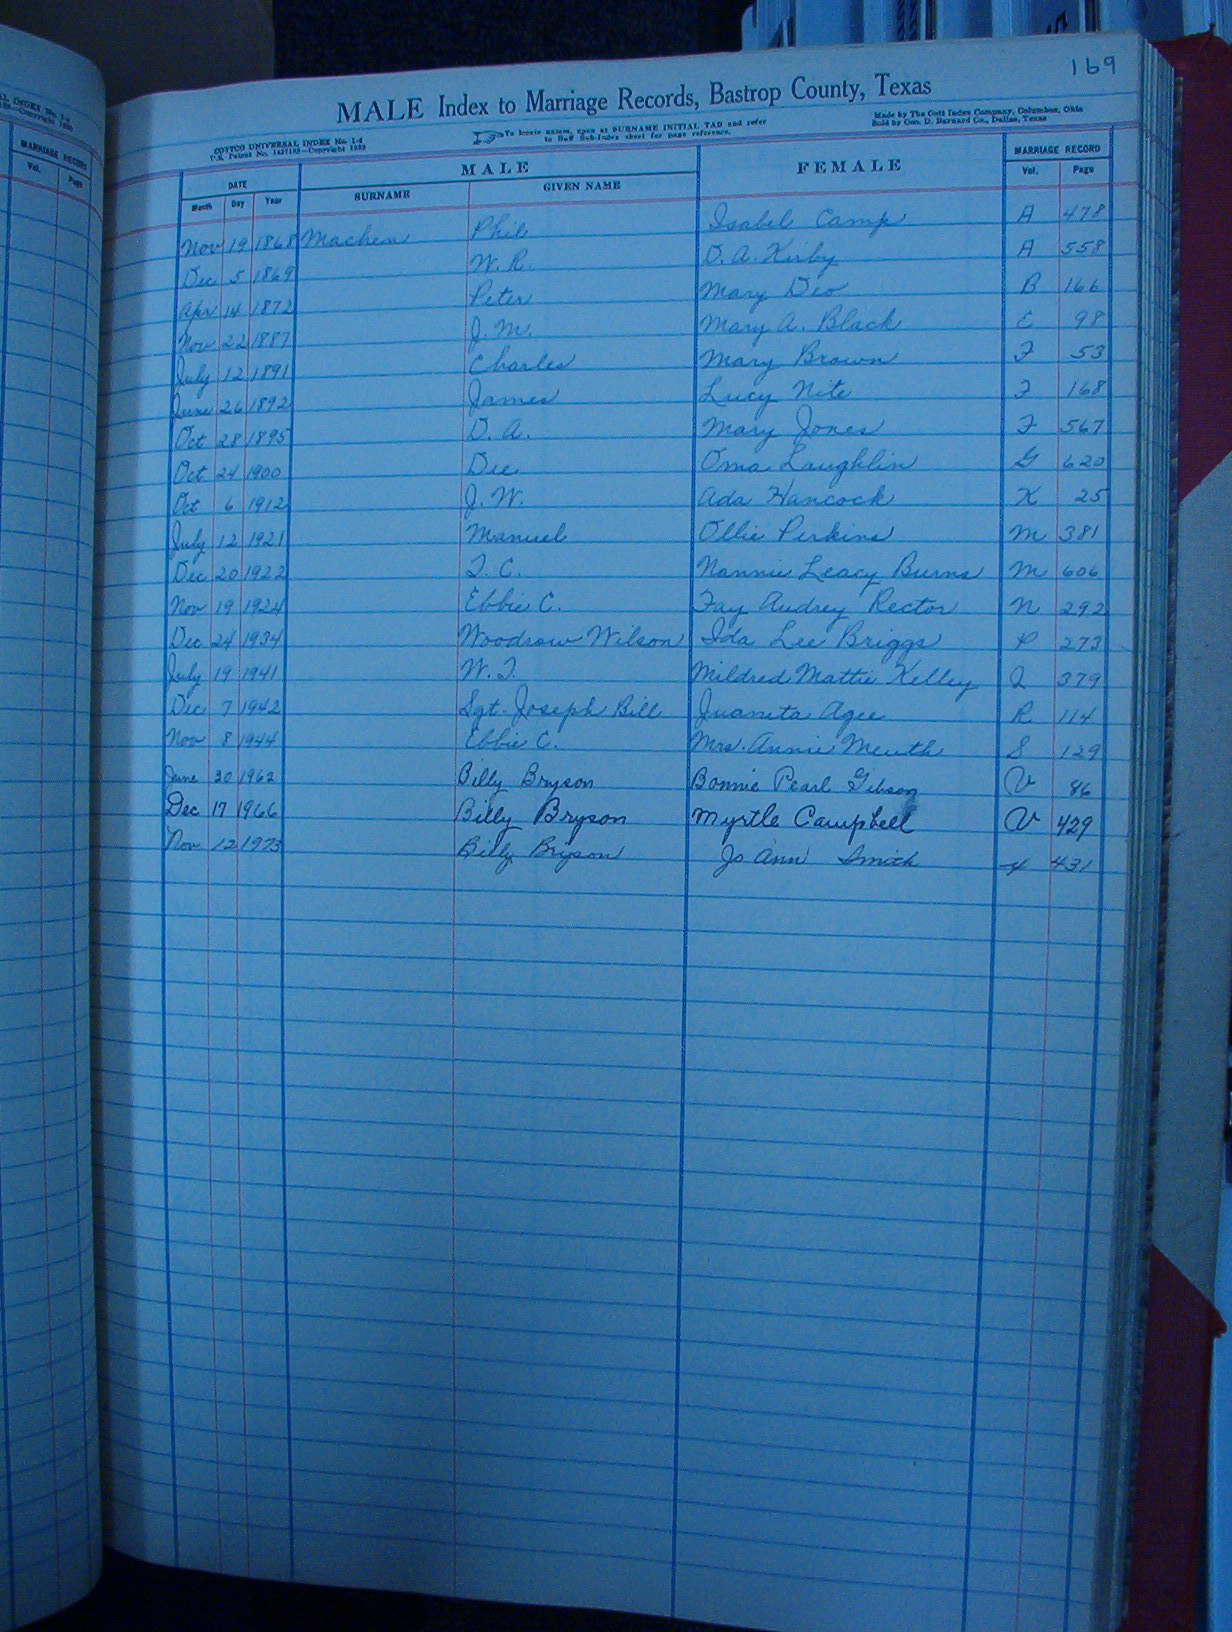 169
MALE Index to Marriage Records, Bastrop County, Texas
COTTCO UNIVERSAL INDEX No. I-d
U.S. Patent No. Copyright
To locate names, open at SURNAME INITIAL TAB and refer
to Buff Sub-Index sheet for page reference.
Made by The Cott Index Company, Columbus, Ohio
Sold by Geo. D. Barnard Co., Dallas, Texas
DATE MALE FEMALE MARRIAGE RECORD
Month Day Year SURNAME GIVEN NAME Vol. Page
Nov 19 1868 Machen Phil Isabel Camp A 478
Dec 5 1869 W. R. D. A. Kirby A 558
Apr 14 1872 Peter Mary Deo B 166
Nov 22 1887 J. M. Mary A. Black E 98
July 12 1891 Charles Mary Brown F 53
June 26 1892 James Lucy Nite F 168
Oct 28 1895 D. A. Mary Jones F 567
Oct 24 1900 Dee Oma Laughlin G 620
Oct 6 1912 J. W. Ada Hancock K 25
July 12 1921 Manuel Ollie Perkins M 381
Dec 20 1922 T. C. Nannie Leacy Burns M 606
Nov 19 1924 Ebbie C. Fay Audrey Rector N 292
Dec 24 1934 Woodrow Wilson Ida Lee Briggs P 273
July 19 1941 W. T. Mildred Mattie Kelley Q 379
Dec 7 1942 Sgt. Joseph Bill Juanita Agee R 114
Nov 8 1944 Ebbie C. Mrs. Annie Meuth S 129
June 30 1962 Billy Bryson Bonnie Pearl Gibson V 86
Dec 17 1966 Billy Bryson Myrtle Campbell V 429
Nov 12 1973 Billy Bryson Jo Ann Smith 431
MARRIAGE RECORD
Vol. Page